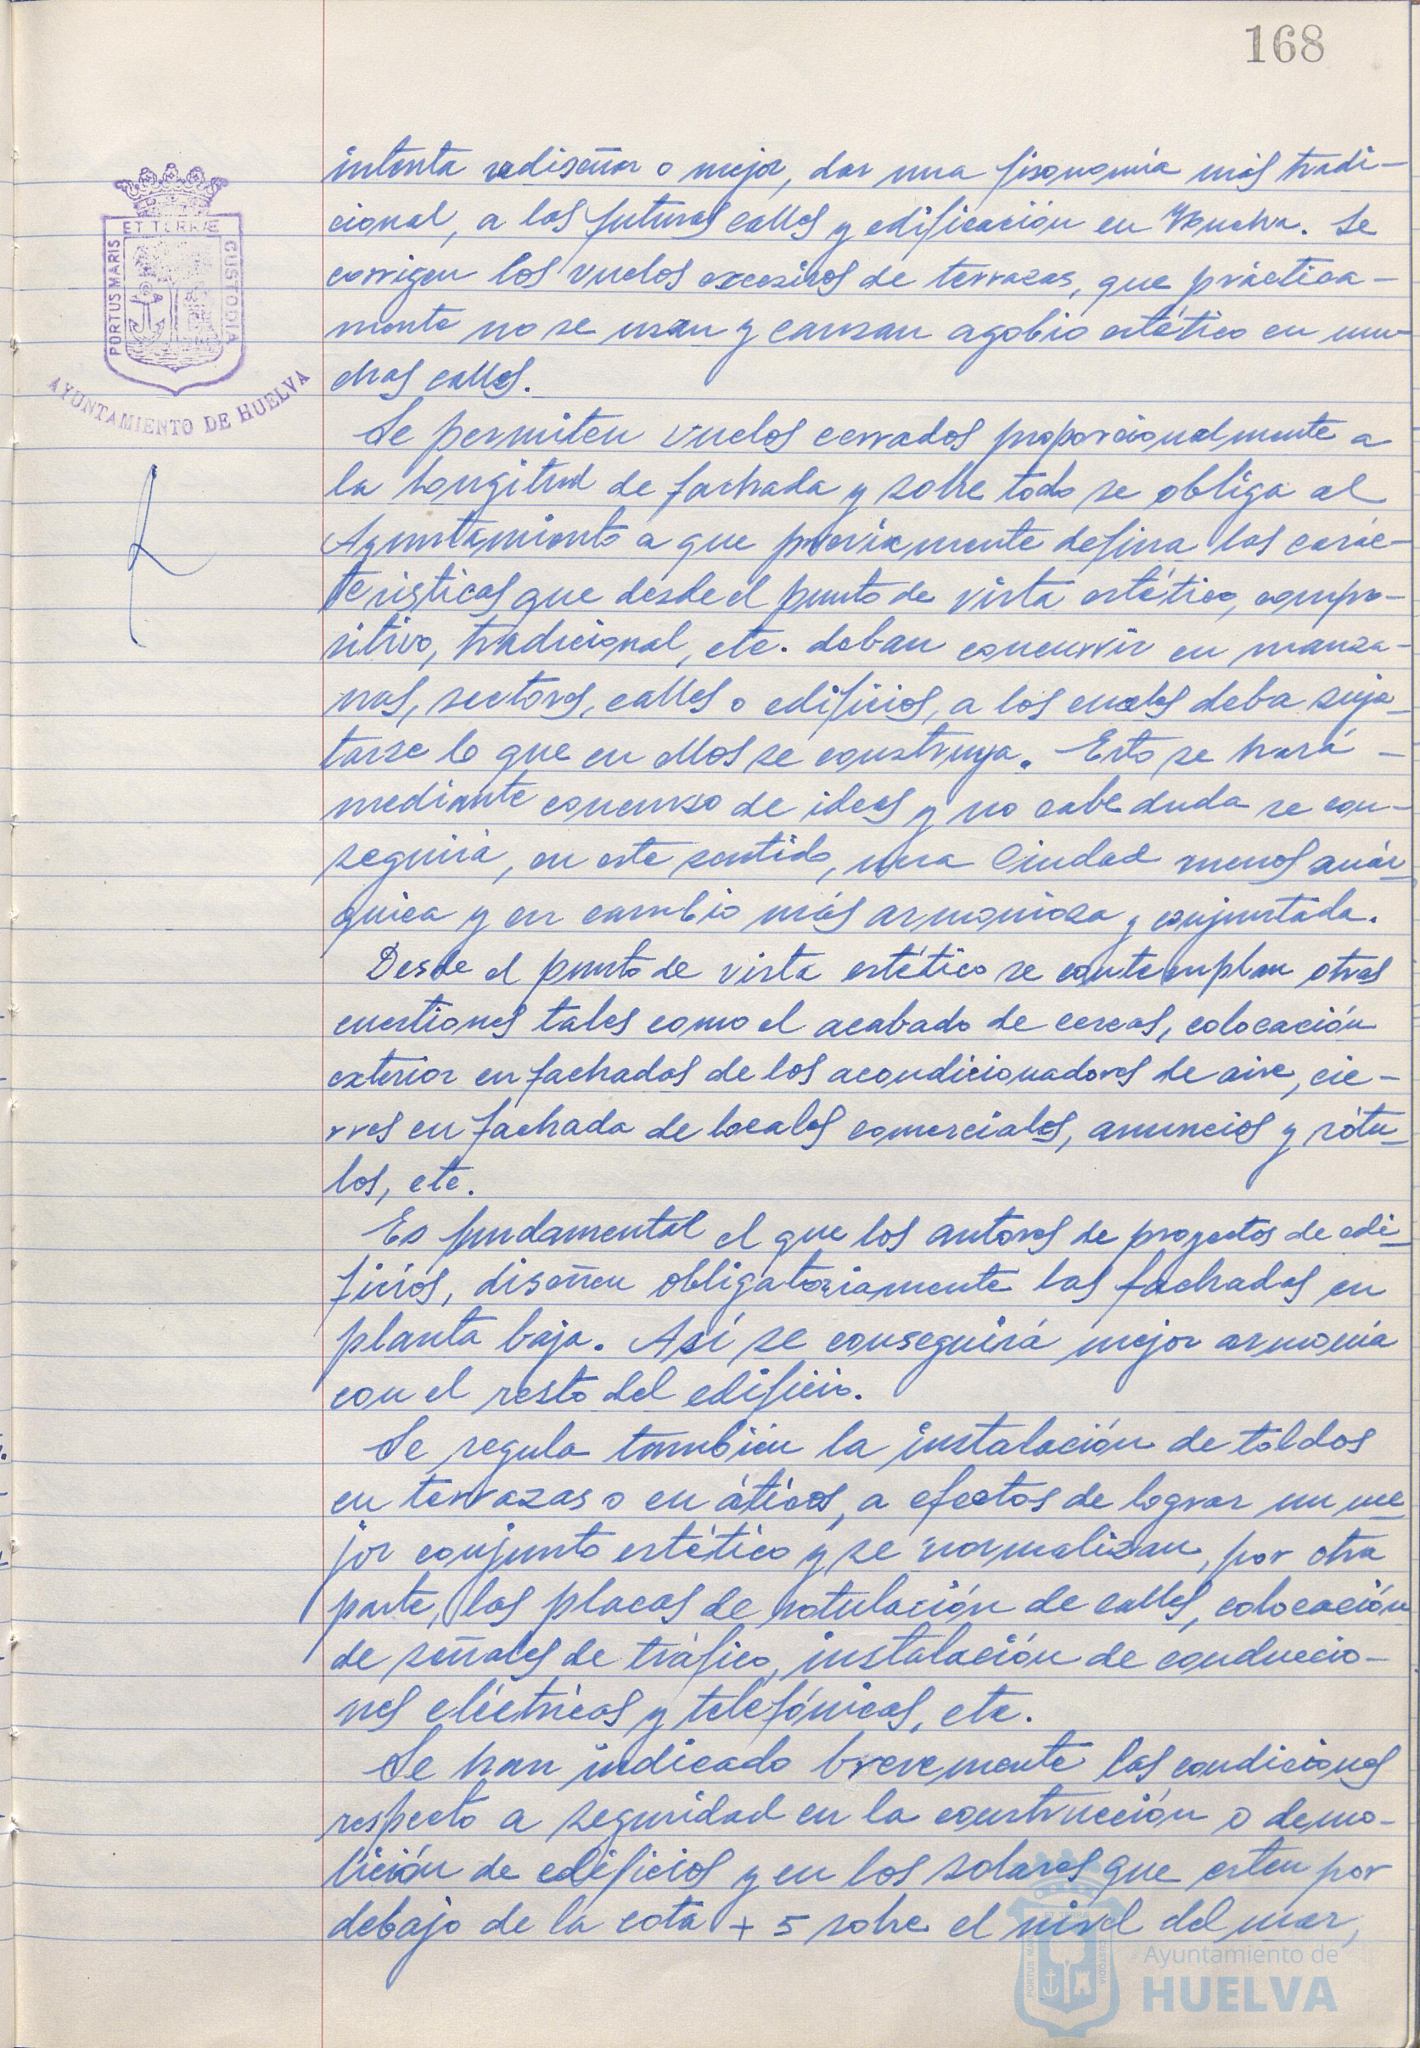 168
PORTUS MARIS
ET TERRÆ
CUSTODIA
AYUNTAMIENTO DE HUELVA
intenta rediseñar o mejor, dar una fisonomía más tradi-
cional, a las futuras calles y edificación en Huelva. Se
corrigen los vuelos excesivos de terrazas, que práctica-
mente no se usan y causan agobio estético en mu-
chas calles.
Se permiten vuelos cerrados proporcionalmente a
la longitud de fachada y sobre todo se obliga al
Ayuntamiento a que previamente defina las carac-
terísticas que desde el punto de vista estético, compo-
sitivo, tradicional, etc. deban concurrir en manza-
nas, sectores, calles o edificios, a los cuales deba suje-
tarse lo que en ellos se construya. Esto se hará -
mediante concurso de ideas y no cabe duda se con-
seguirá, en este sentido, una Ciudad menos anár-
quica y en cambio más armoniosa y conjuntada.
Desde el punto de vista estético se contemplan otras
cuestiones tales como el acabado de cercas, colocación
exterior en fachadas de los acondicionadores de aire, cie-
rres en fachada de locales comerciales, anuncios y rótu-
los, etc.
Es fundamental el que los autores de proyectos de edi-
ficios, diseñen obligatoriamente las fachadas en
planta baja. Así se conseguirá mejor armonía
con el resto del edificio.
Se regula también la instalación de toldos
en terrazas o en áticos, a efectos de lograr un me-
jor conjunto estético y se normalizan, por otra
parte, las placas de rotulación de calles, colocación
de señales de tráfico, instalación de conduccio-
nes eléctricas y telefónicas, etc.
Se han indicado brevemente las condiciones
respecto a seguridad en la construcción o demo-
lición de edificios y en los solares que esten por
debajo de la cota + 5 sobre el nivel del mar,
Ayuntamiento de
HUELVA